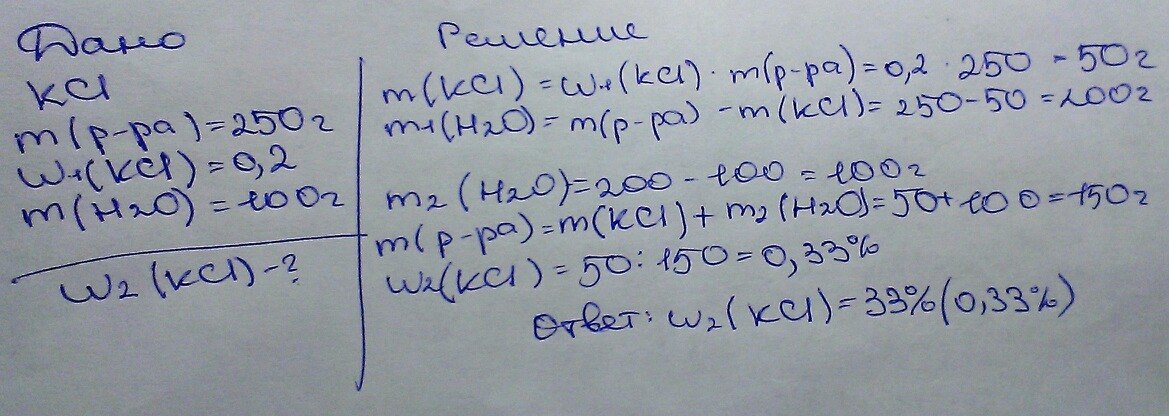 Дано
KCl
m(р-ра)=250г
w₁(KCl)=0,2
m(H2O)=100г
w2(KCl)-?
Решение
m(KCl)=w₁(KCl)·m(р-ра)=0,2·250=50г
m₁(H2O)=m(р-ра)-m(KCl)=250-50=200г
m2(H2O)=200-100=100г
m(р-ра)=m(KCl)+m2(H2O)=50+100=150г
w2(KCl)=50:150=0,33%
Ответ: w2(KCl)=33%(0,33%)